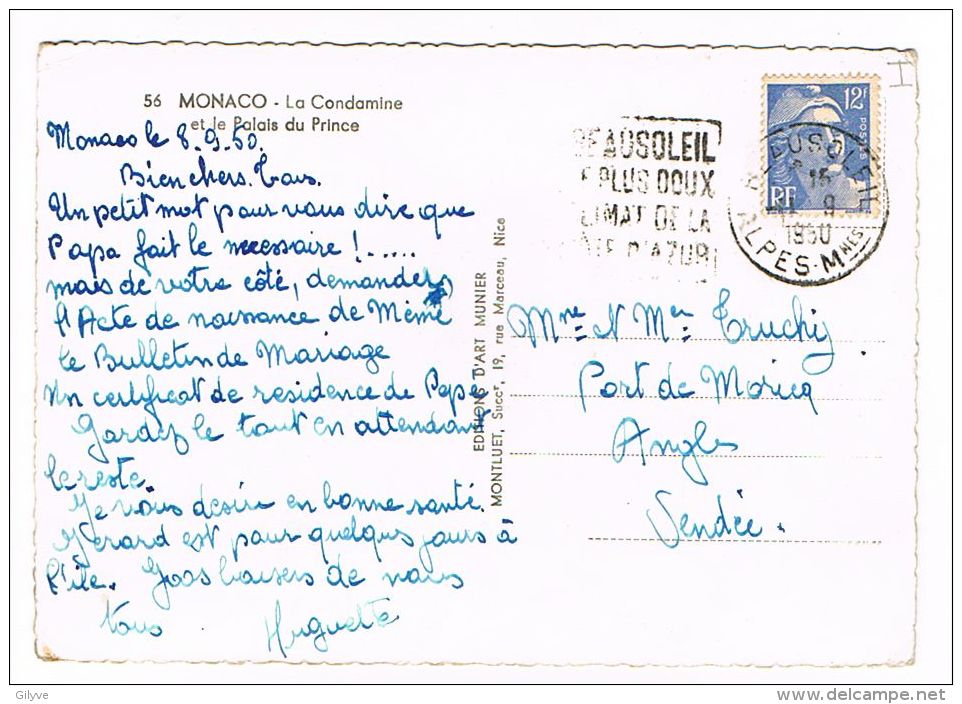 56 MONACO - La Condamine
et le Palais du Prince
Monaco le 8.9.50.
Bien chers Tous.
Un petit mot pour vous dire que
Papa fait le necessaire !......
mais de votre côté, demandez
l'Acte de naissance de Mémé
Le Bulletin de Mariage
Un certificat de residence de Pepé
Gardez le tout en attendant
le reste.
Je vous désire en bonne santé.
Gérard est pour quelques jours à
l'île. Gros baisers de nous
tous Huguette
EDITIONS D'ART MUNIER
MONTLUET, Succr, 19, rue Marceau, Nice
BEAUSOLEIL
PLUS DOUX
CLIMAT DE LA
CÔTE D'AZUR
12F
POSTES
RF
BEAUSOLEIL
15
9
1950
ALPES-Mmes
I
Mme & Mer Truchy
Port de Moricq
Angles
Vendée.
Gilyve
www.delcampe.net